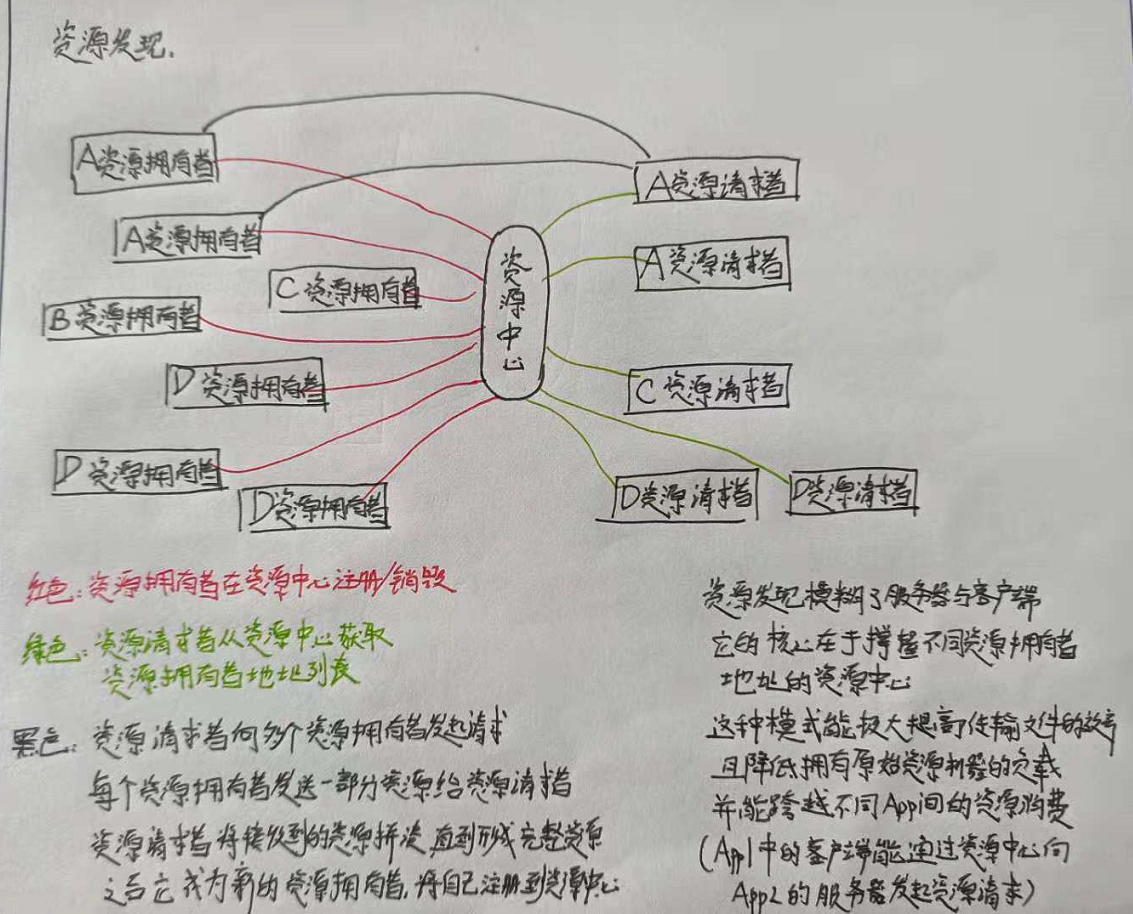 资源发现.
A资源拥有者
A资源请求者
A资源拥有者
资源中心
A资源请求者
C资源拥有者
B资源拥有者
D资源拥有者
C资源请求者
D资源拥有者
D资源拥有者
D资源请求者
D资源请求者
红色:资源拥有者在资源中心注册/销毁
绿色:资源请求者从资源中心获取
资源拥有者地址列表
黑色:资源请求者向多个资源拥有者发起请求
每个资源拥有者发送一部分资源给资源请求者
资源请求者将接收到的资源拼凑直到形成完整资源
之后它成为新的资源拥有者,将自己注册到资源中心
资源发现模糊了服务器与客户端
它的核心在于掌握不同资源拥有者
地址的资源中心
这种模式能极大提高传输文件的效率
且降低拥有原始资源机器的负载
并能跨越不同App间的资源消费
(App1中的客户端能通过资源中心向
App2的服务器发起资源请求)